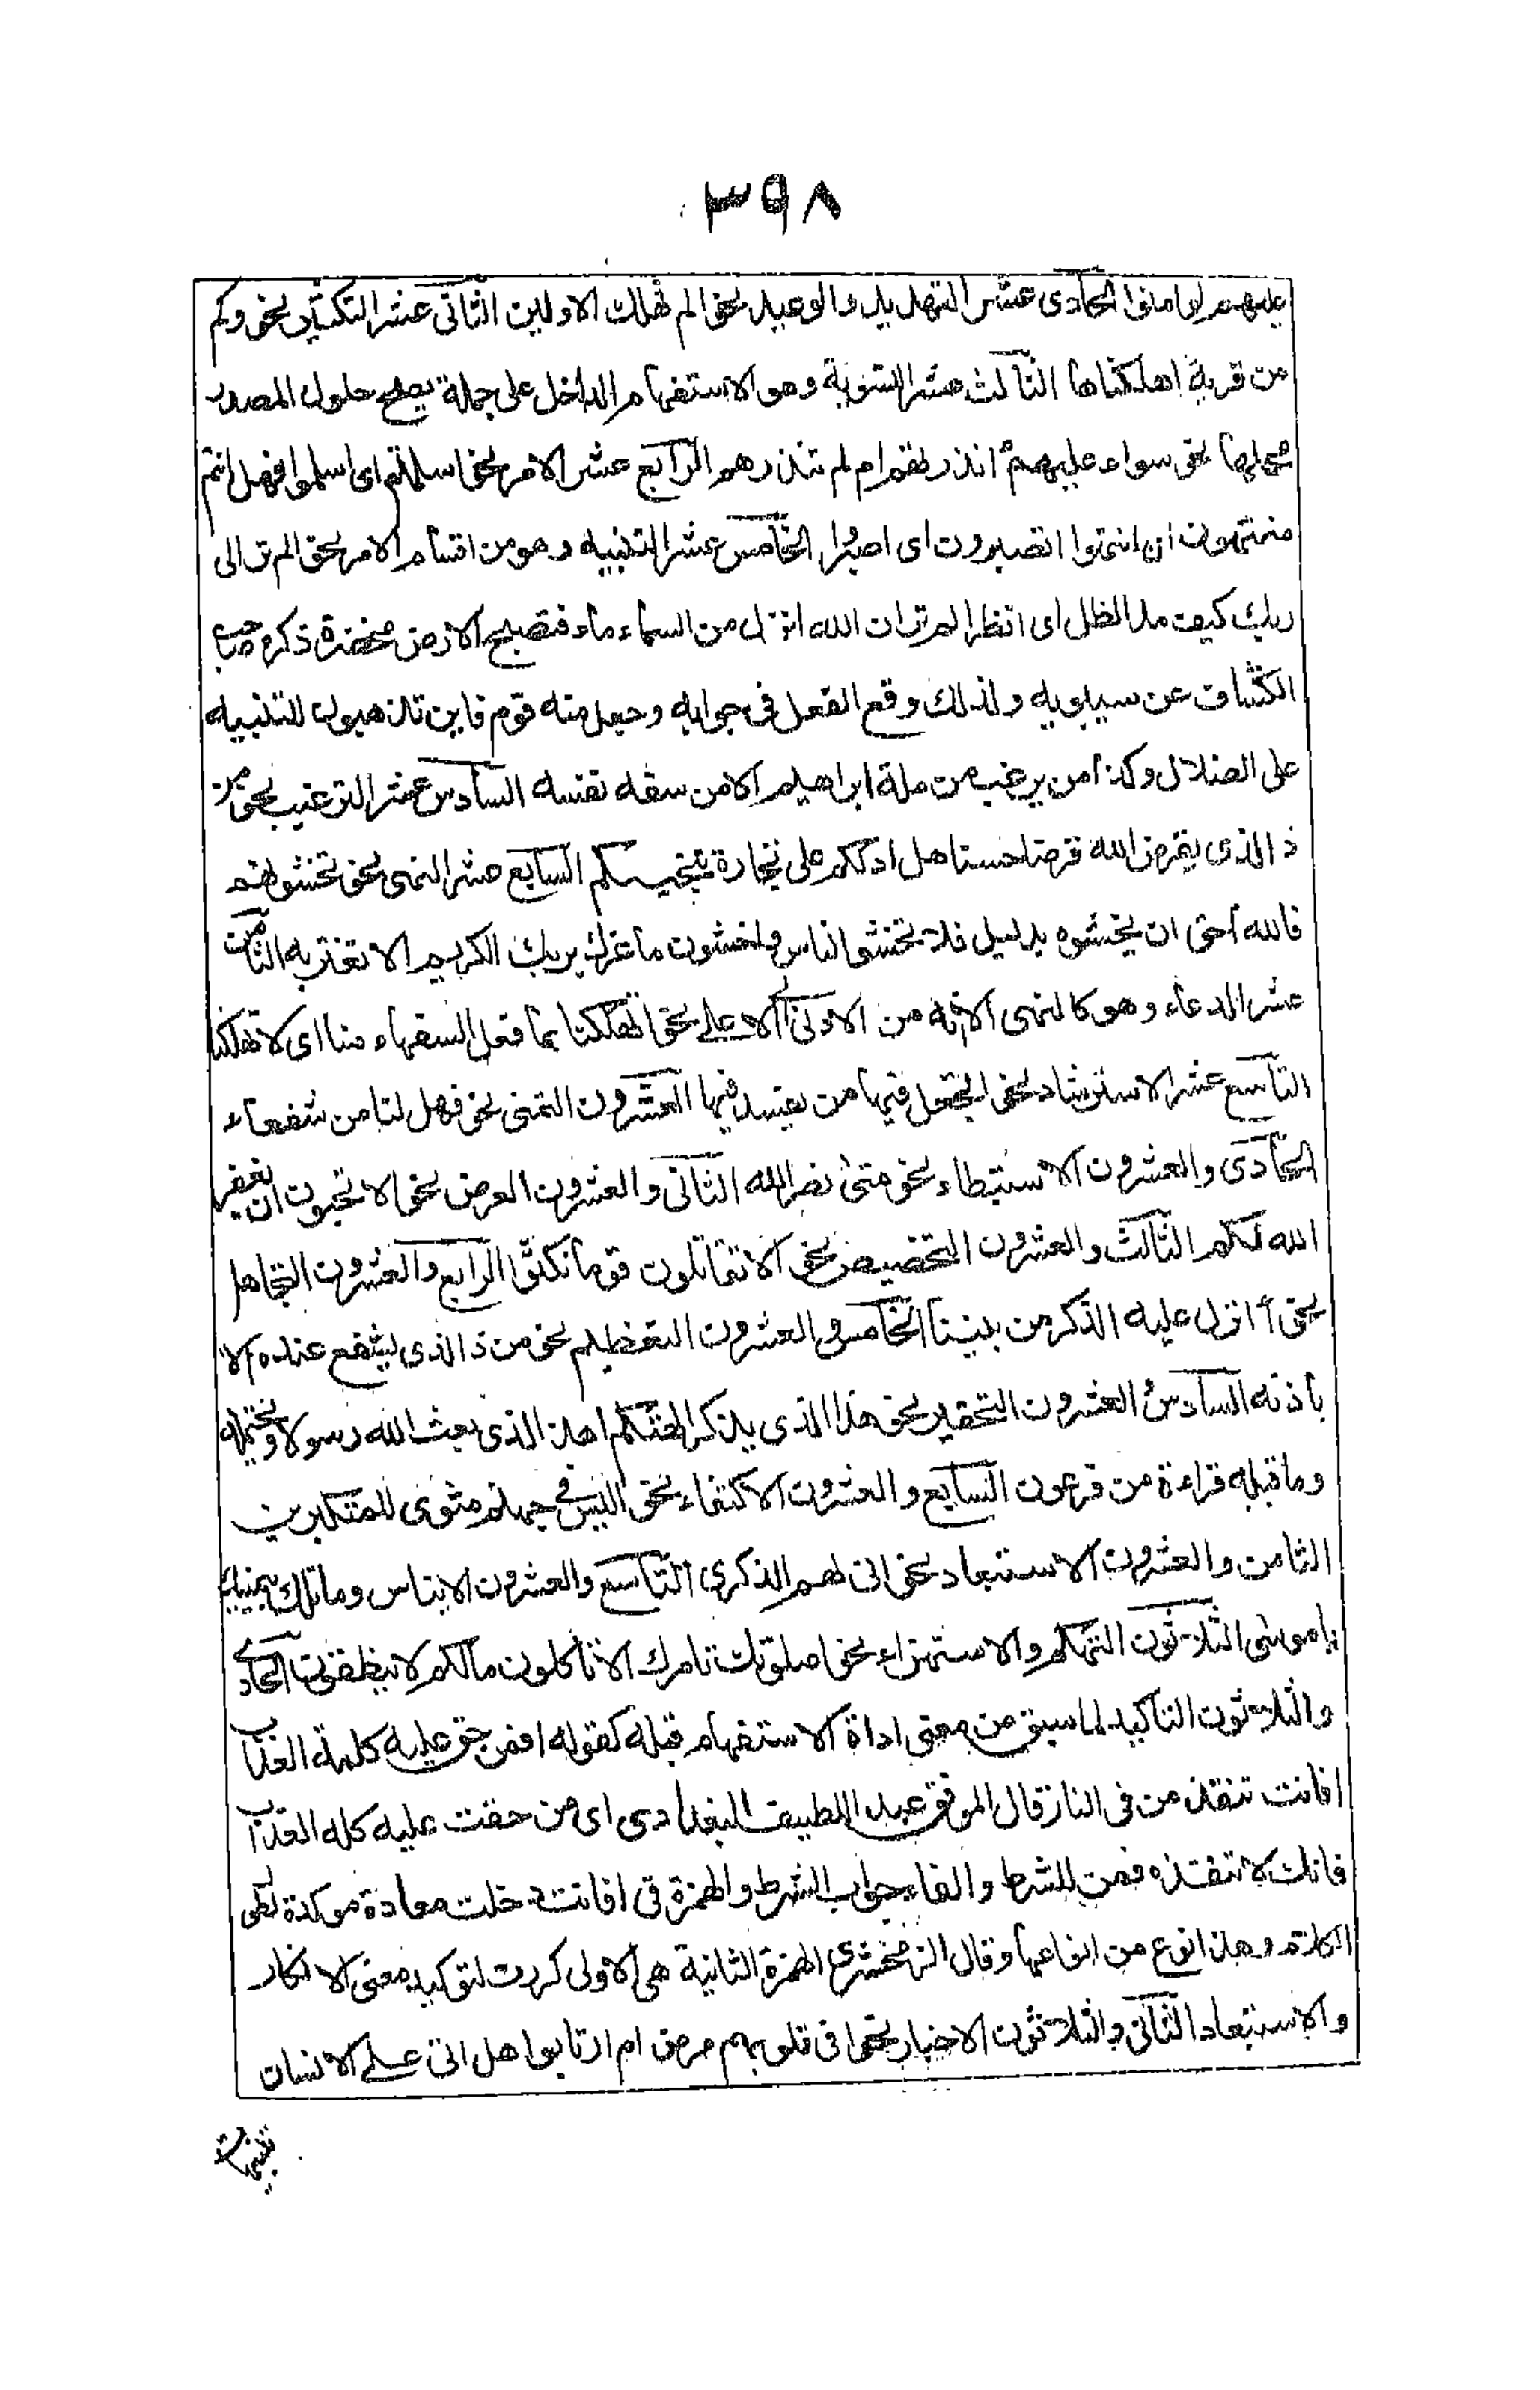 ٣٩٨
عليهم لو امنوا الحادى عشر التهديد والوعيد نحو الم نهلك الاولين الثانى عشر التكثير نحو وكم
من قرية اهلكناها الثالث عشر التسوية وهو الاستفهام الداخل على جملة يصلح حلول المصدر
محلها نحو سواء عليهم ءانذرتهم ام لم تنذرهم الرابع عشر الامر نحو اسلمتم اى اسلموا فهل انتم
منتهون اى انتهوا اتصبرون اى اصبروا الخامس عشر التنبيه وهو من اقسام الامر نحو الم تر الى
ربك كيف مد الظل اى انظر الم تر ان الله انزل من السماء ماء فتصبح الارض مخضرة ذكره صاحب
الكشاف عن سيبويه ولذلك وقع الفعل فى جوابه وجعل منه قوم فاين تذهبون للتنبيه
على الضلال وكذا من يرغب من ملة ابراهيم الا من سفه نفسه السادس عشر الترغيب نحو من
ذا الذى يقرض الله قرضا حسنا هل ادلكم على تجارة تنجيكم السابع عشر النهى نحو تخشونهم
فالله احق ان يخشوه بدليل فلا تخشوا الناس واخشون ما غرك بربك الكريم الا تغتر به الثامن
عشر الدعاء وهو كالنهى الا انه من الادنى الى الاعلى نحو اتهلكنا بما فعل السفهاء منا اى لا تهلكنا
التاسع عشر الاسترشاد نحو اتجعل فيها من يفسد فيها العشرون التمنى نحو فهل لنا من شفعاء
الحادى والعشرون الاستبطاء نحو متى نصر الله الثانى والعشرون العرض نحو الا تحبون ان يغفر
الله لكم الثالث والعشرون التحضيض نحو الا تقاتلون قوما نكثوا الرابع والعشرون التجاهل
نحو أ انزل عليه الذكر من بيننا الخامس والعشرون التعظيم نحو من ذا الذى يشفع عنده الا
باذنه السادس والعشرون التحقير نحو هذا الذى يذكر الهتكم اهذا الذى بعث الله رسولا ويحتمله
وما قبله قراءة من فرعون السابع والعشرون الاكتفاء نحو اليس فى جهنم مثوى للمتكبرين
الثامن والعشرون الاستبعاد نحو انى لهم الذكرى التاسع والعشرون الايناس وما تلك بيمينك
يا موسى الثلاثون التهكم والاستهزاء نحو اصلوتك تامرك الا تاكلون ما لكم لا تنطقون الحادى
والثلاثون التاكيد لما سبق من معنى اداة الاستفهام قبله كقوله افمن حق عليه كلمة العذاب
افانت تنقذ من فى النار قال الموفق عبد اللطيف البغدادى اى من حقت عليه كلمة العذاب
فانك لا تنقذه فمن للشرط والفاء جواب الشرط والهمزة فى افانت دخلت معادة موكدة لطول
الكلام وهذا نوع من انواعها وقال الزمخشرى الهمزة الثانية هى الاولى كررت لتوكيد معنى الانكار
والاستبعاد الثانى والثلاثون الاخبار نحو افى قلوبهم مرض ام ارتابوا هل اتى على الانسان